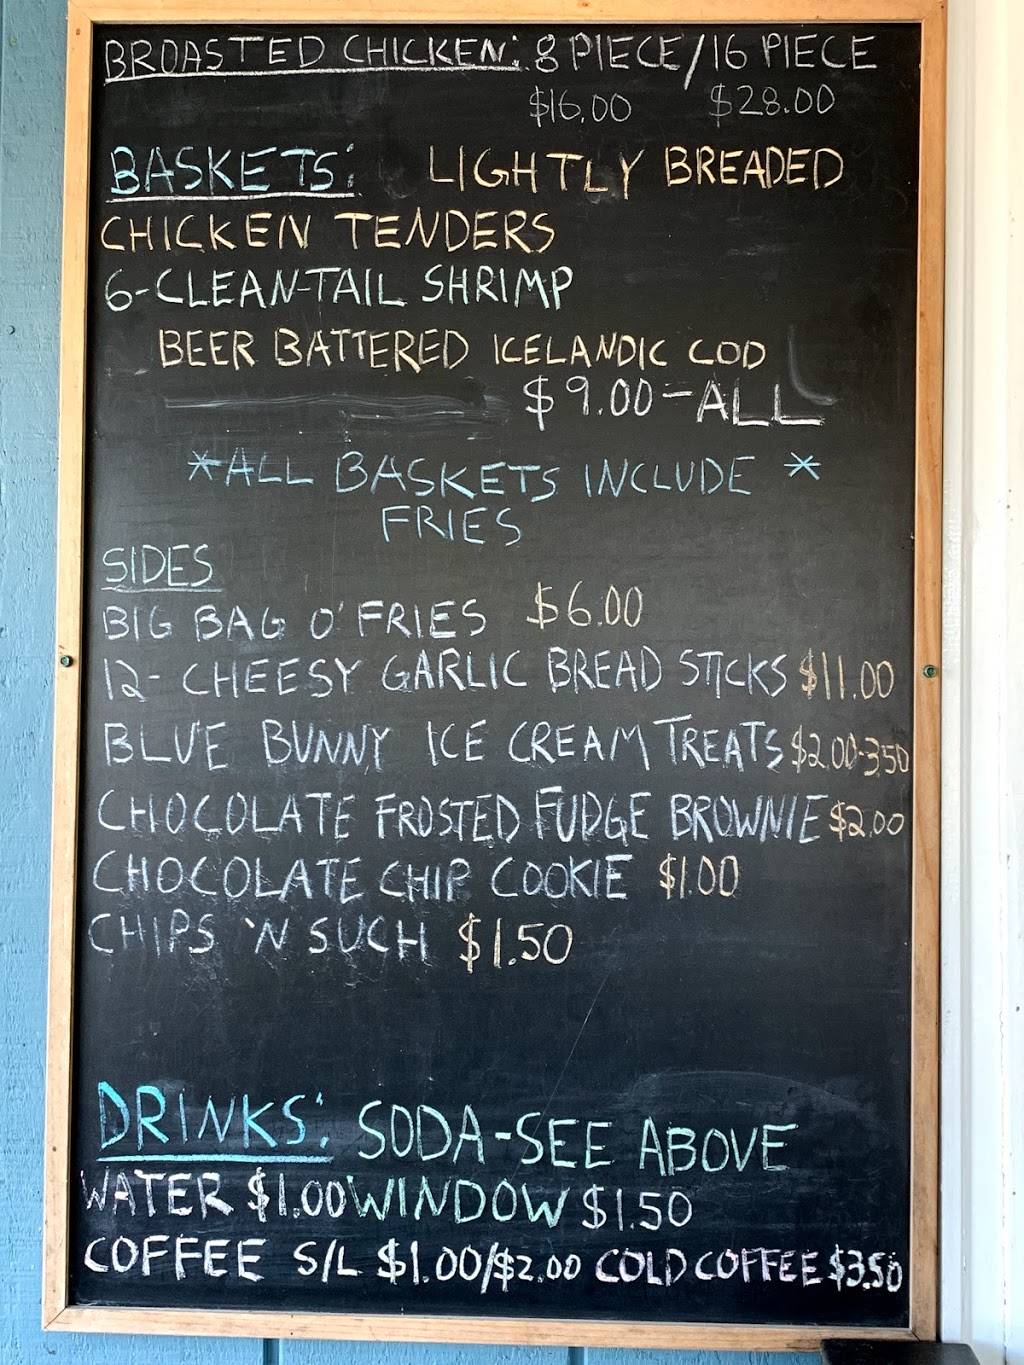 BROASTED CHICKEN: 8 PIECE/16 PIECE
$16.00 $28.00
BASKETS: LIGHTLY BREADED
CHICKEN TENDERS
6-CLEAN-TAIL SHRIMP
BEER BATTERED ICELANDIC COD
$9.00-ALL
*ALL BASKETS INCLUDE *
FRIES
SIDES
BIG BAG O' FRIES $6.00
12- CHEESY GARLIC BREAD STICKS $11.00
BLUE BUNNY ICE CREAM TREATS $2.00-3.50
CHOCOLATE FROSTED FUDGE BROWNIE $2.00
CHOCOLATE CHIP COOKIE $1.00
CHIPS 'N SUCH $1.50
DRINKS: SODA-SEE ABOVE
WATER $1.00 WINDOW $1.50
COFFEE S/L $1.00/$2.00 COLD COFFEE $3.50